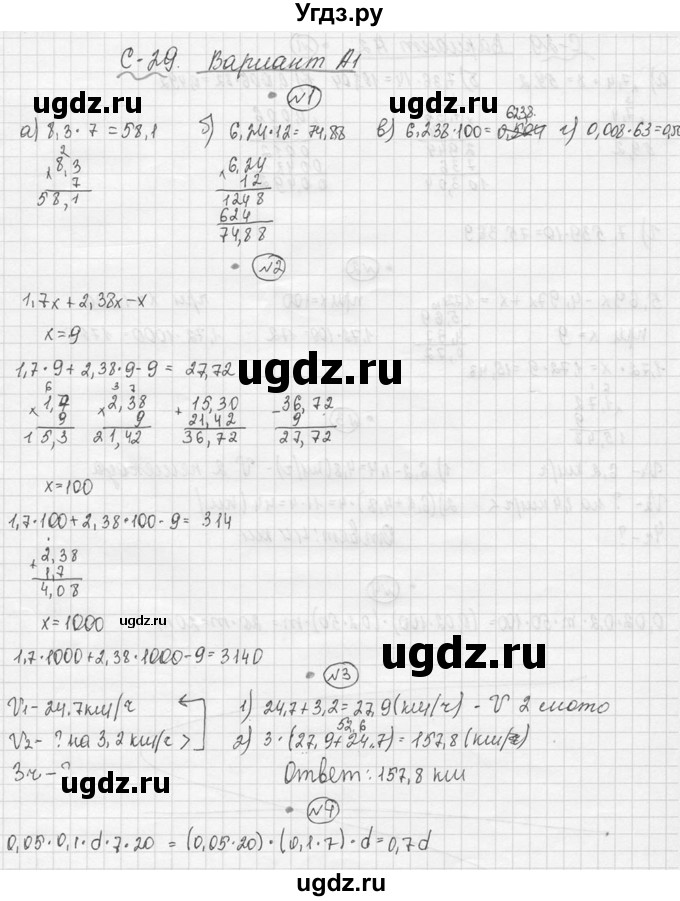 Угдз.ру
С-29. Вариант А1
№1
а) 8,3·7=58,1 б) 6,24·12=74,88 в) 6,238·100= 6238 г) 0,008·63=0,50
2
×8,3
7
58,1
×6,24
12
1248
624
74,88
№2
1,7x+2,38x-x
x=9
1,7·9+2,38·9-9= 27,72
6
×1,7
9
15,3
3 7
×2,38
9
21,42
+15,30
21,42
36,72
-36,72
9
27,72
x=100
1,7·100+2,38·100-9= 314
+2,38
1,7
4,08
x=1000
1,7·1000+2,38·1000-9=3140
№3
V1-24.7км/ч
V2-? на 3,2км/ч >
3ч-?
1) 24,7+3,2=27,9(км/ч) - V 2 мото
52,6
2) 3·(27,9+24.7)=157,8(км/ч)
Ответ:157,8 км
№4
0,05·0,1·d·7·20 =(0,05·20)·(0,1·7)·d=0,7d
ugdz.ru
ugdz.ru
ugdz.ru
ugdz.ru
ugdz.ru
ugdz.ru
ugdz.ru
ugdz.ru
ugdz.ru
ugdz.ru